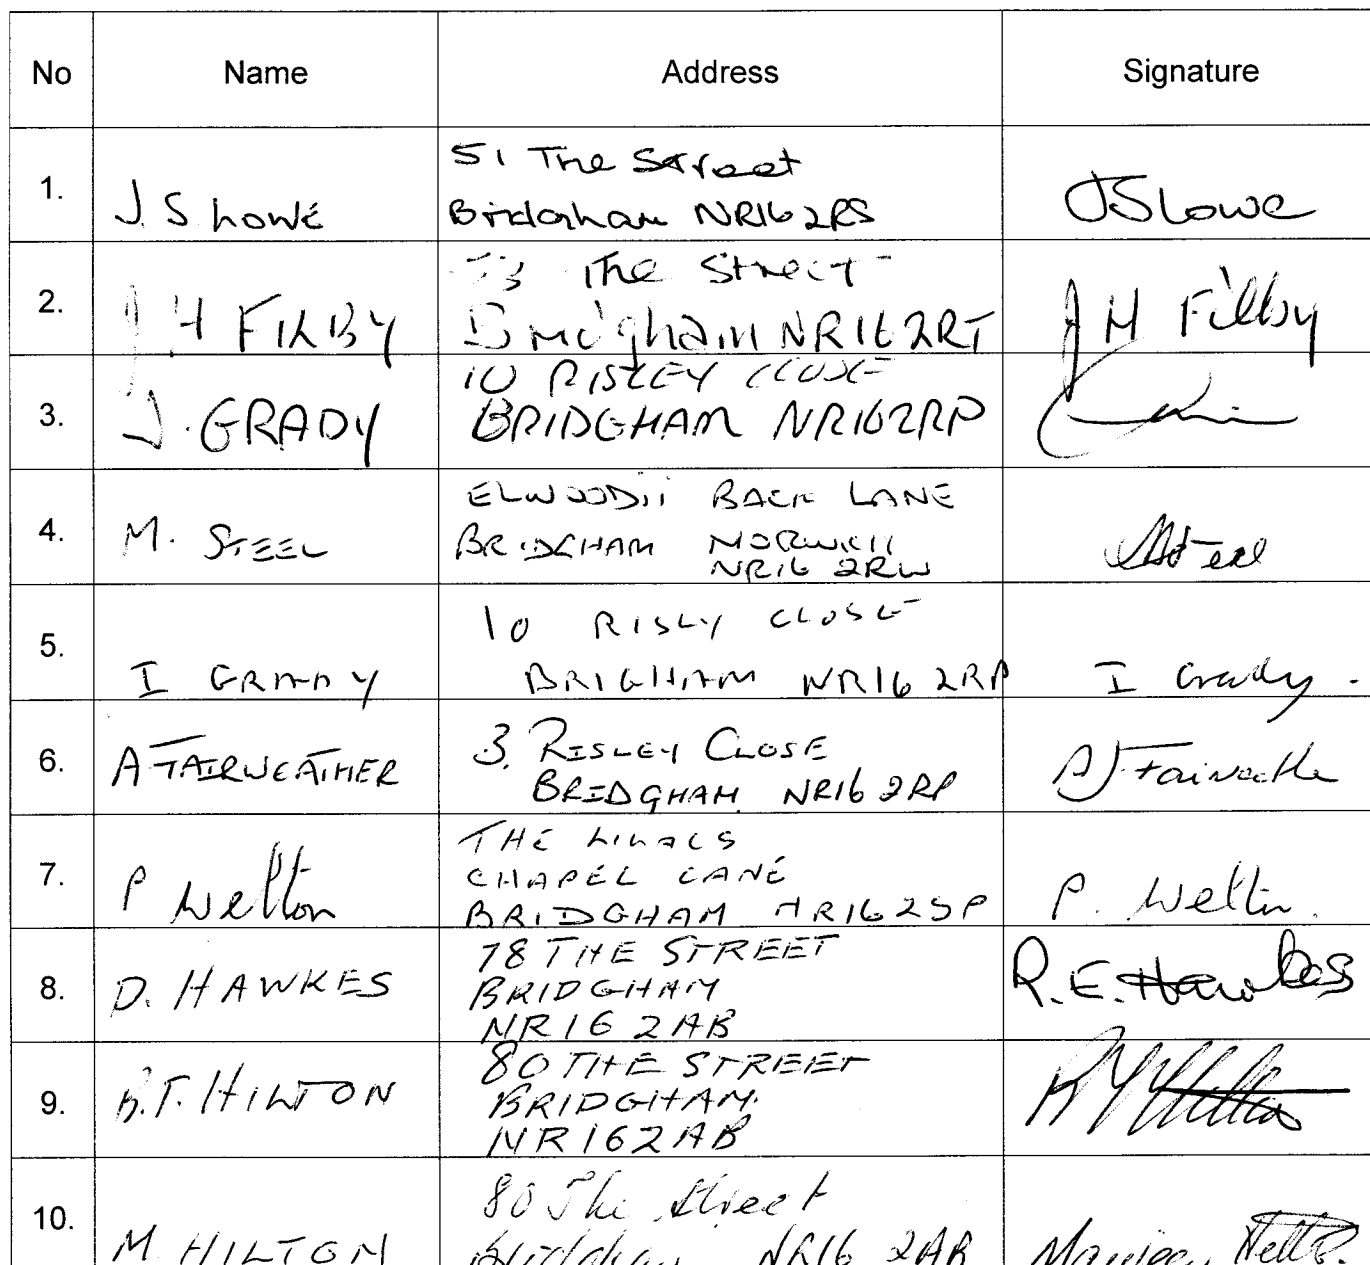 No Name Address Signature
1. J. S Lowe 51 The Street
Bridgham NR16 2RS JSLowe
2. J H FILBY 73 The Street
Bridgham NR16 2RT J H Filby
3. J. GRADY 10 RISLEY CLOSE
BRIDGHAM NR16 2RP
4. M. STEEL BACK LANE
BRIDGHAM NORWICH
NR16 2RW MSteel
5. I GRADY 10 RISLY CLOSE
BRIGHAM NR16 2RP I Grady.
6. A FAIRWEATHER 3. RISLEY CLOSE
BRIDGHAM NR16 2RP AJ Fairweathe
7. P Welton THE
CHAPEL LANE
BRIDGHAM NR16 2SP P. Welton.
8. D. HAWKES 78 THE STREET
BRIDGHAM
NR16 2AB R.E. Hawkes
9. B.T. HILTON 80 THE STREET
BRIDGHAM.
NR16 2AB
10. M. HILTON 80 The Street
Bridgham NR16 2AB Maureen Hilton.